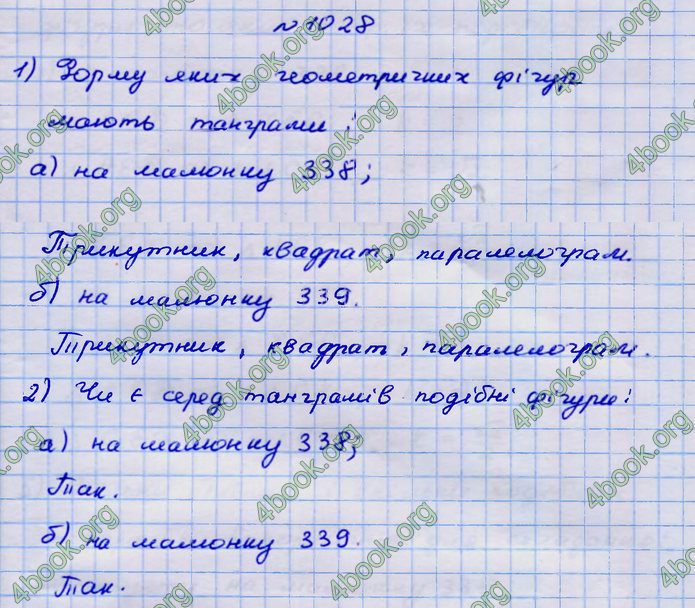 № 1028
1) Форму яких геометричних фігур
мають танграми:
а) на малюнку 338;
Трикутник, квадрат, паралелограм.
б) на малюнку 339.
Трикутник, квадрат, паралелограм.
2) Чи є серед танграмів подібні фігури:
а) на малюнку 338;
Так.
б) на малюнку 339.
Так.